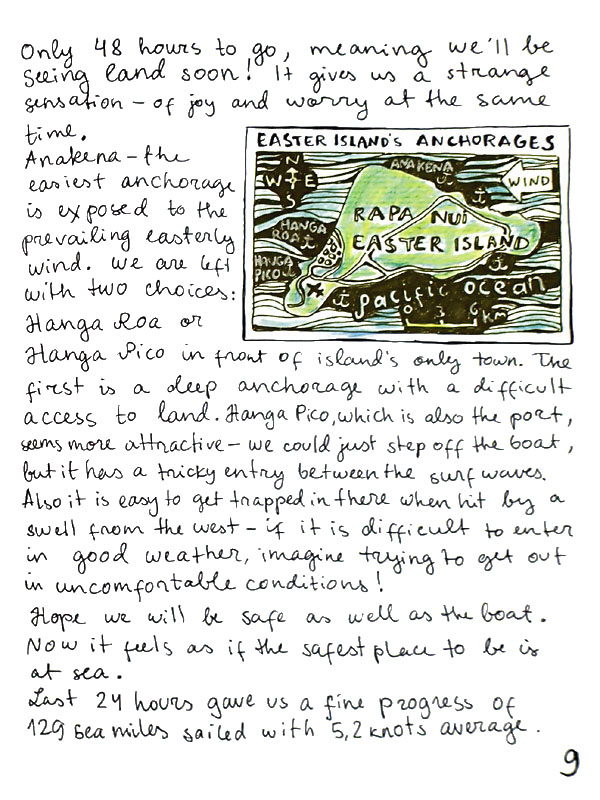 Only 48 hours to go, meaning we'll be
seeing land soon! It gives us a strange
sensation – of joy and worry at the same
time.
Anakena – the
easiest anchorage
is exposed to the
prevailing easterly
wind. We are left
with two choices:
Hanga Roa or
EASTER ISLAND'S ANCHORAGES
N
W E
S
ANAKENA
WIND
RAPA NUI
EASTER ISLAND
HANGA
ROA
HANGA
PICO
pacific ocean
0 3 6 km
Hanga Pico in front of island's only town. The
first is a deep anchorage with a difficult
access to land. Hanga Pico, which is also the port,
seems more attractive – we could just step off the boat,
but it has a tricky entry between the surf waves.
Also it is easy to get trapped in there when hit by a
swell from the west – if it is difficult to enter
in good weather, imagine trying to get out
in uncomfortable conditions!
Hope we will be safe as well as the boat.
Now it feels as if the safest place to be is
at sea.
Last 24 hours gave us a fine progress of
129 sea miles sailed with 5,2 knots average.
9